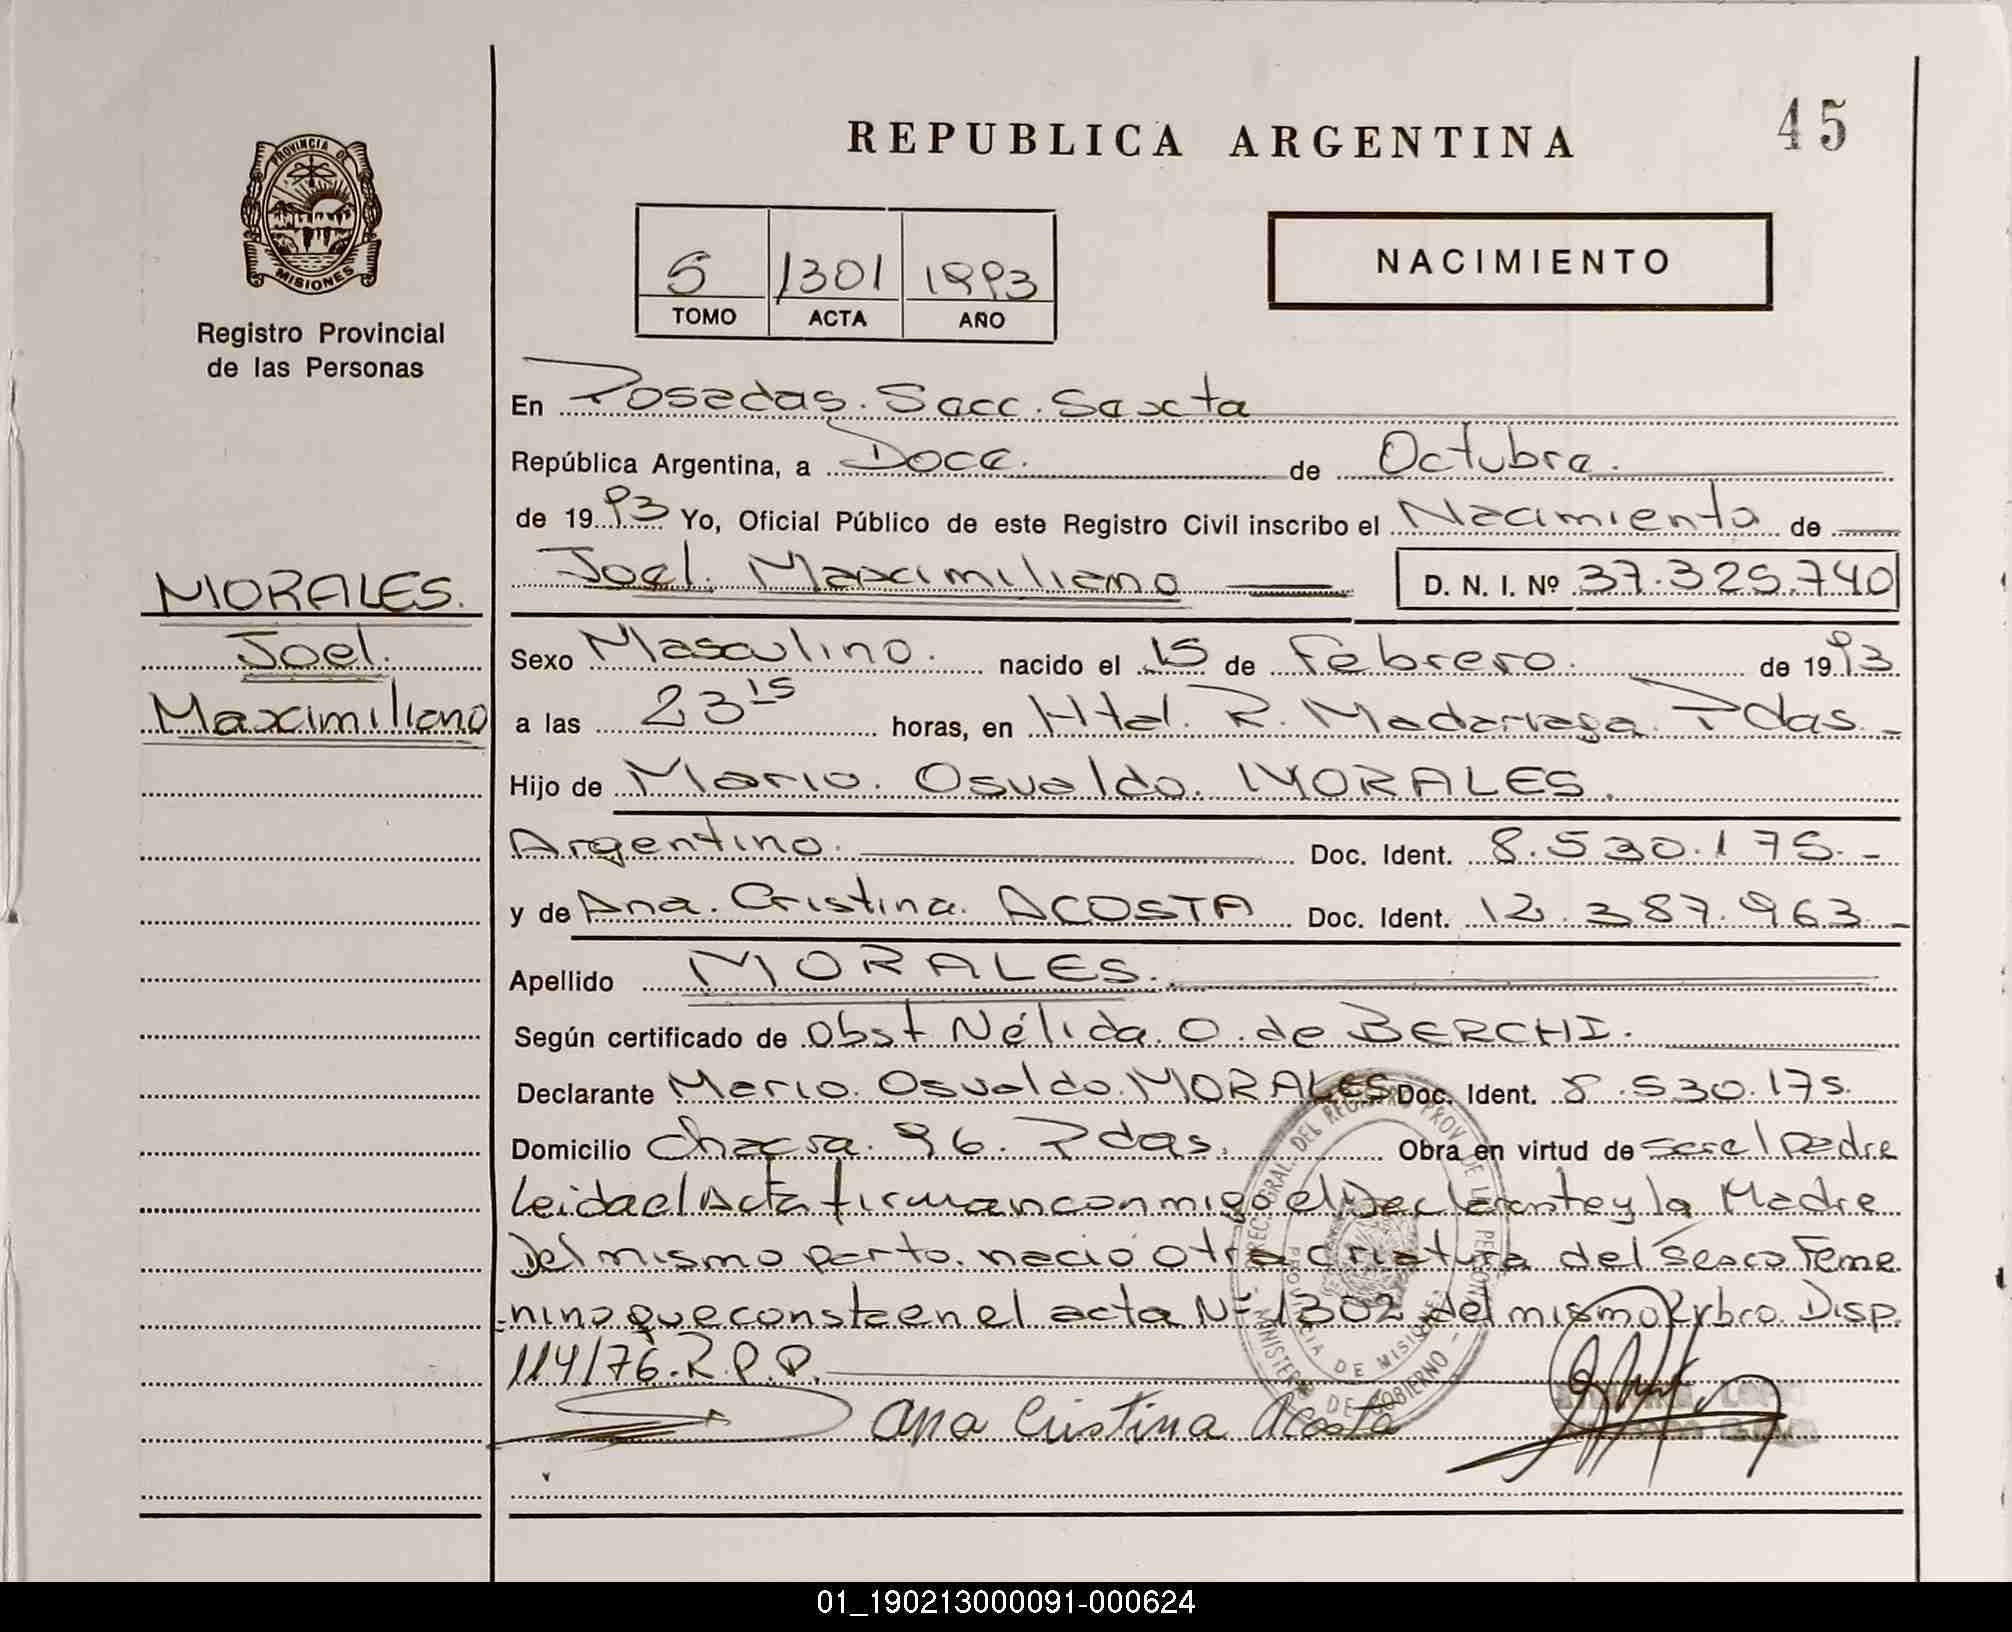 REPUBLICA ARGENTINA
45
PROVINCIA DE
MISIONES
Registro Provincial
de las Personas
5 1301 1993
TOMO ACTA AÑO
NACIMIENTO
En Posadas. Secc. Sexta
República Argentina, a Doce. de Octubre.
de 1993 Yo, Oficial Público de este Registro Civil inscribo el Nacimiento de
Joel. Maximiliano D. N. I. Nº 37.325.740
MORALES.
Joel.
Maximiliano
Sexo Masculino. nacido el 15 de Febrero. de 1993
a las 23 15 horas, en Htal. R. Madariaga. Pdas.
Hijo de Mario. Osvaldo. MORALES.
Argentino. Doc. Ident. 8.530.175.-
y de Ana. Cristina. ACOSTA Doc. Ident. 12.387.963.-
Apellido MORALES.
Según certificado de Obst Nélida. O. de BERCHI.
Declarante Mario. Osvaldo. MORALES Doc. Ident. 8.530.175.
Domicilio Chacra. 96. Pdas. Obra en virtud de ser el padre
Leida el Acta firman conmigo el Declarante y la Madre
Del mismo parto. nació otra criatura del sexo Feme
-nino que consta en el acta Nº 1302 del mismo Lybro. Disp.
114/76.R.P.P.
Ana Cristina Acosta
01_190213000091-000624